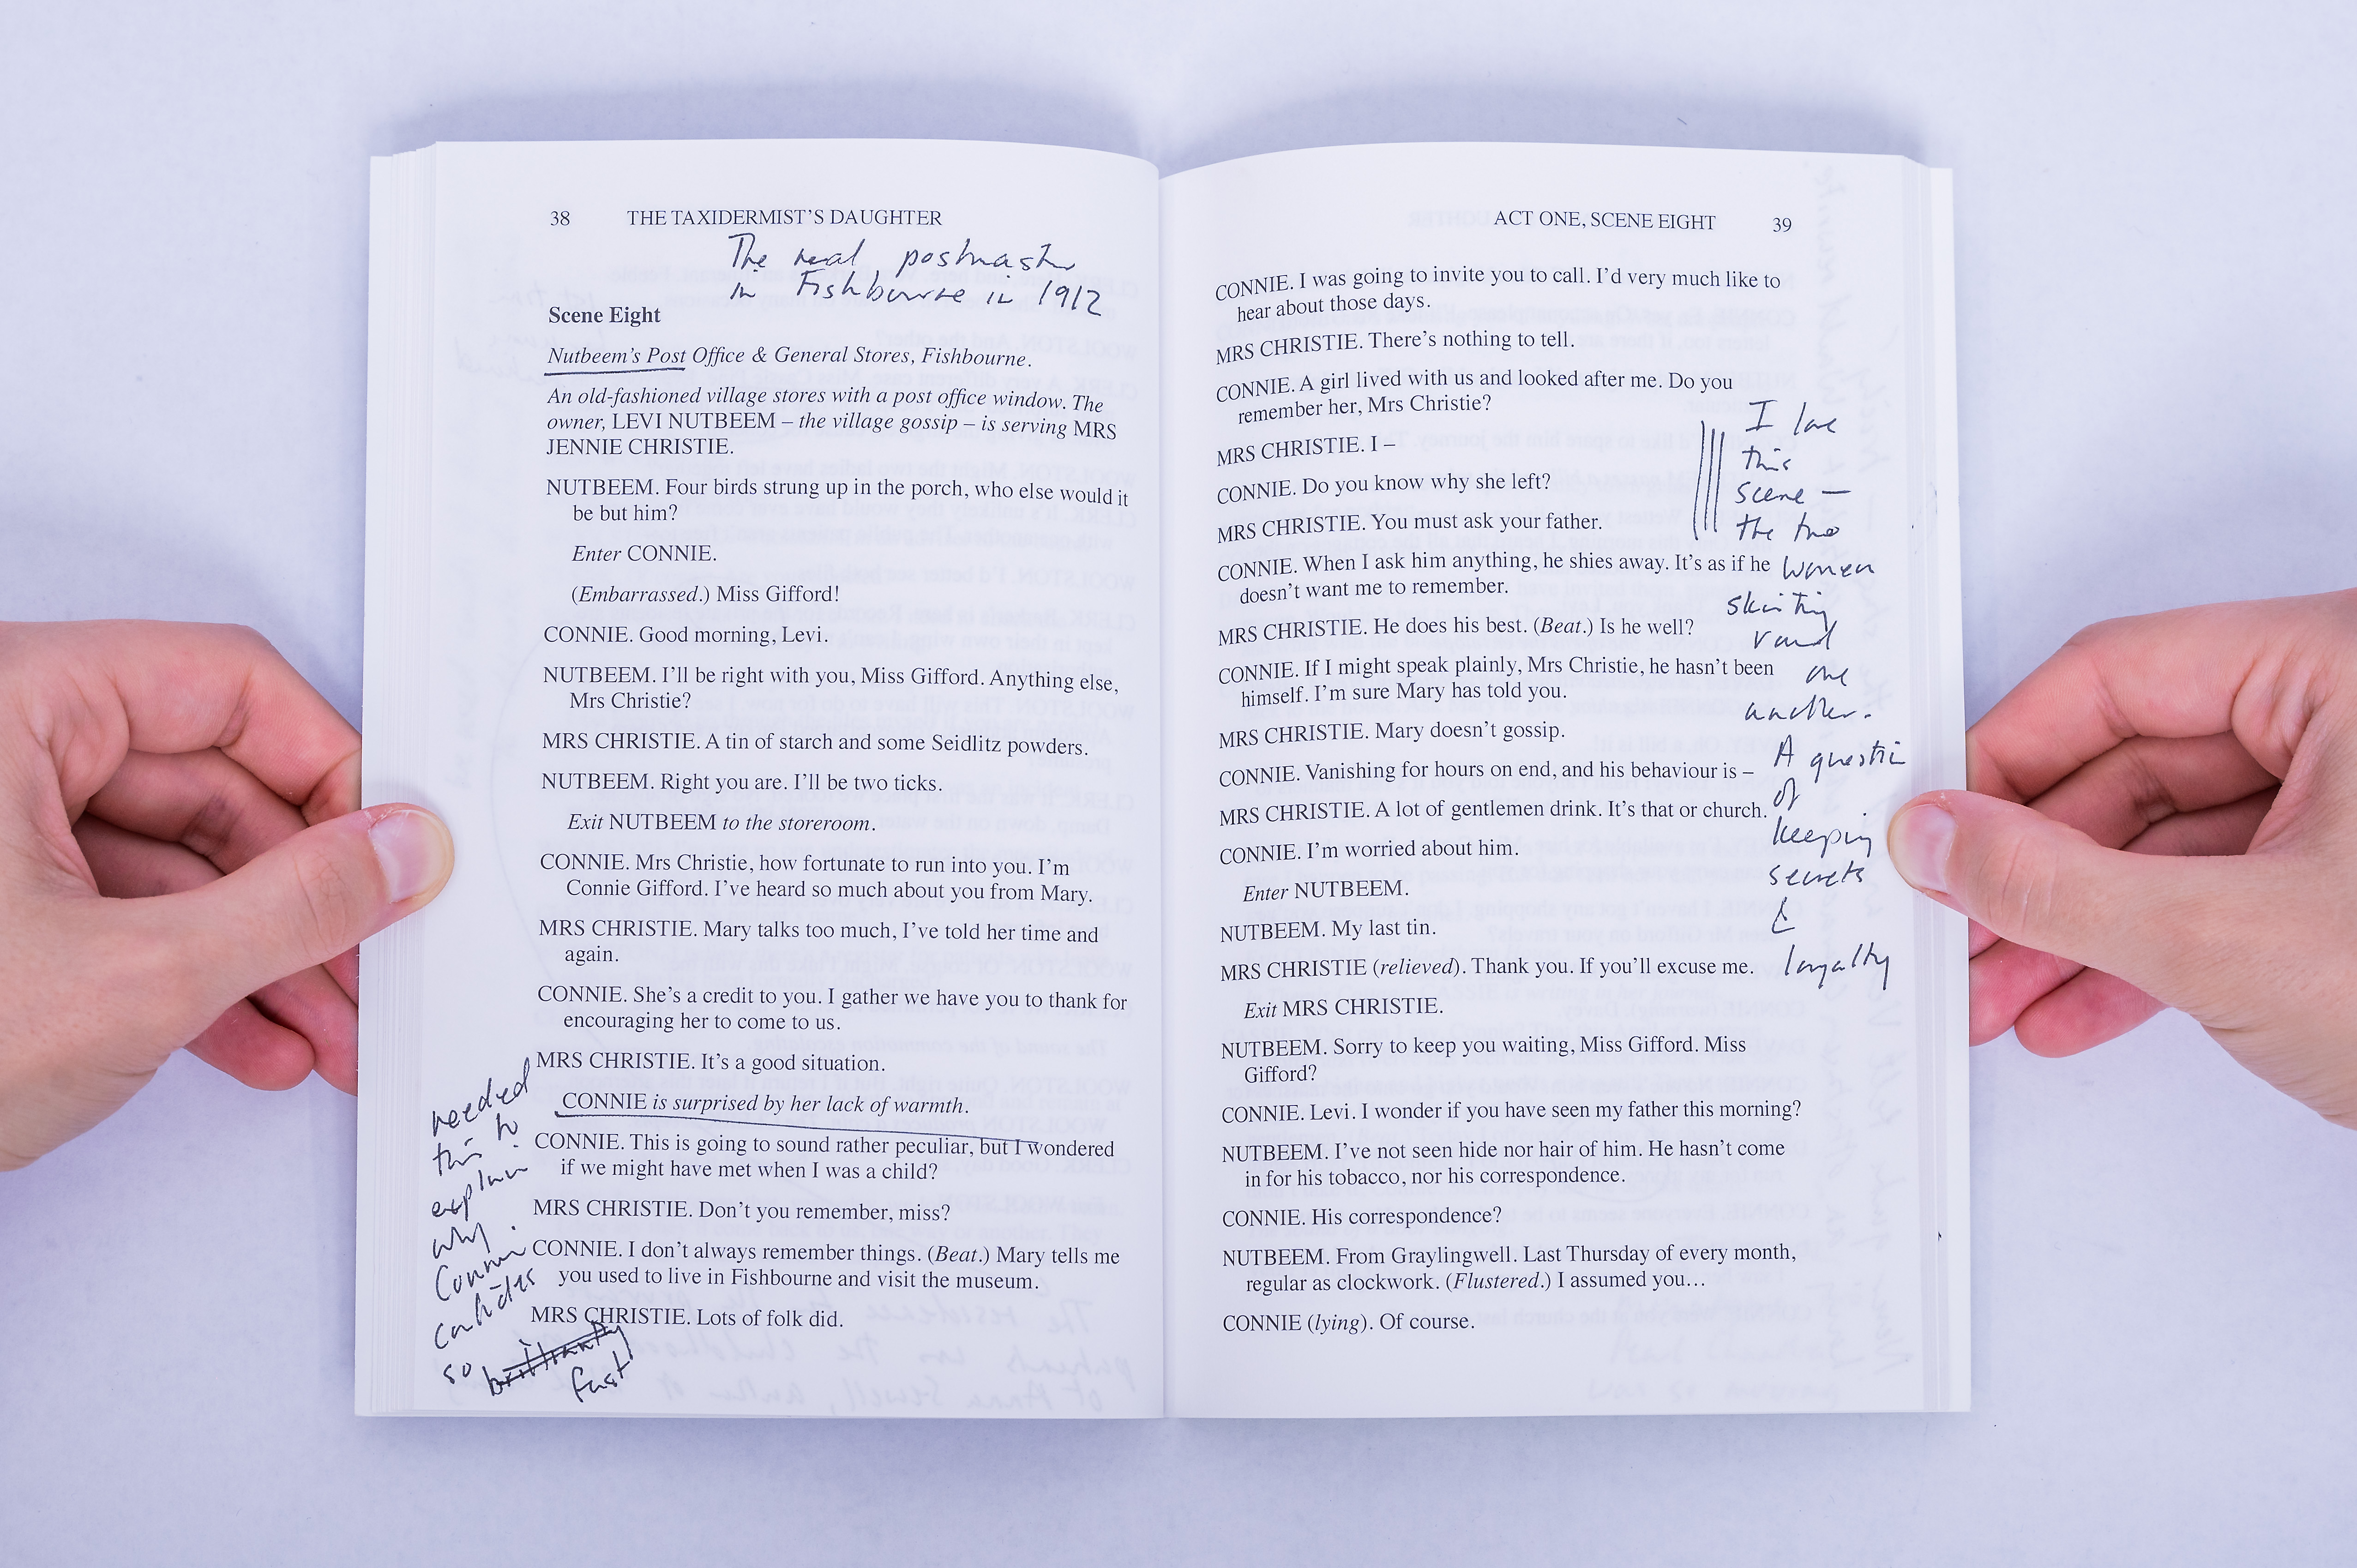 38 THE TAXIDERMIST'S DAUGHTER
The real postmaster
in Fishbourne in 1912
Scene Eight
Nutbeem's Post Office & General Stores, Fishbourne.
An old-fashioned village stores with a post office window. The
owner, LEVI NUTBEEM – the village gossip – is serving MRS
JENNIE CHRISTIE.
NUTBEEM. Four birds strung up in the porch, who else would it
be but him?
Enter CONNIE.
(Embarrassed.) Miss Gifford!
CONNIE. Good morning, Levi.
NUTBEEM. I'll be right with you, Miss Gifford. Anything else,
Mrs Christie?
MRS CHRISTIE. A tin of starch and some Seidlitz powders.
NUTBEEM. Right you are. I'll be two ticks.
Exit NUTBEEM to the storeroom.
CONNIE. Mrs Christie, how fortunate to run into you. I'm
Connie Gifford. I've heard so much about you from Mary.
MRS CHRISTIE. Mary talks too much, I've told her time and
again.
CONNIE. She's a credit to you. I gather we have you to thank for
encouraging her to come to us.
MRS CHRISTIE. It's a good situation.
CONNIE is surprised by her lack of warmth.
CONNIE. This is going to sound rather peculiar, but I wondered
if we might have met when I was a child?
MRS CHRISTIE. Don't you remember, miss?
CONNIE. I don't always remember things. (Beat.) Mary tells me
you used to live in Fishbourne and visit the museum.
MRS CHRISTIE. Lots of folk did.
needed
this to
explain
why
Connie
confides
so brilliantly
fast
ACT ONE, SCENE EIGHT 39
CONNIE. I was going to invite you to call. I'd very much like to
hear about those days.
MRS CHRISTIE. There's nothing to tell.
CONNIE. A girl lived with us and looked after me. Do you
remember her, Mrs Christie?
MRS CHRISTIE. I –
CONNIE. Do you know why she left?
MRS CHRISTIE. You must ask your father.
CONNIE. When I ask him anything, he shies away. It's as if he
doesn't want me to remember.
MRS CHRISTIE. He does his best. (Beat.) Is he well?
CONNIE. If I might speak plainly, Mrs Christie, he hasn't been
himself. I'm sure Mary has told you.
MRS CHRISTIE. Mary doesn't gossip.
CONNIE. Vanishing for hours on end, and his behaviour is –
MRS CHRISTIE. A lot of gentlemen drink. It's that or church.
CONNIE. I'm worried about him.
Enter NUTBEEM.
NUTBEEM. My last tin.
MRS CHRISTIE (relieved). Thank you. If you'll excuse me.
Exit MRS CHRISTIE.
NUTBEEM. Sorry to keep you waiting, Miss Gifford. Miss
Gifford?
CONNIE. Levi. I wonder if you have seen my father this morning?
NUTBEEM. I've not seen hide nor hair of him. He hasn't come
in for his tobacco, nor his correspondence.
CONNIE. His correspondence?
NUTBEEM. From Graylingwell. Last Thursday of every month,
regular as clockwork. (Flustered.) I assumed you…
CONNIE (lying). Of course.
I love
this
scene —
the two
women
skirting
round
one
another.
A question
of
keeping
secrets
&
loyalty